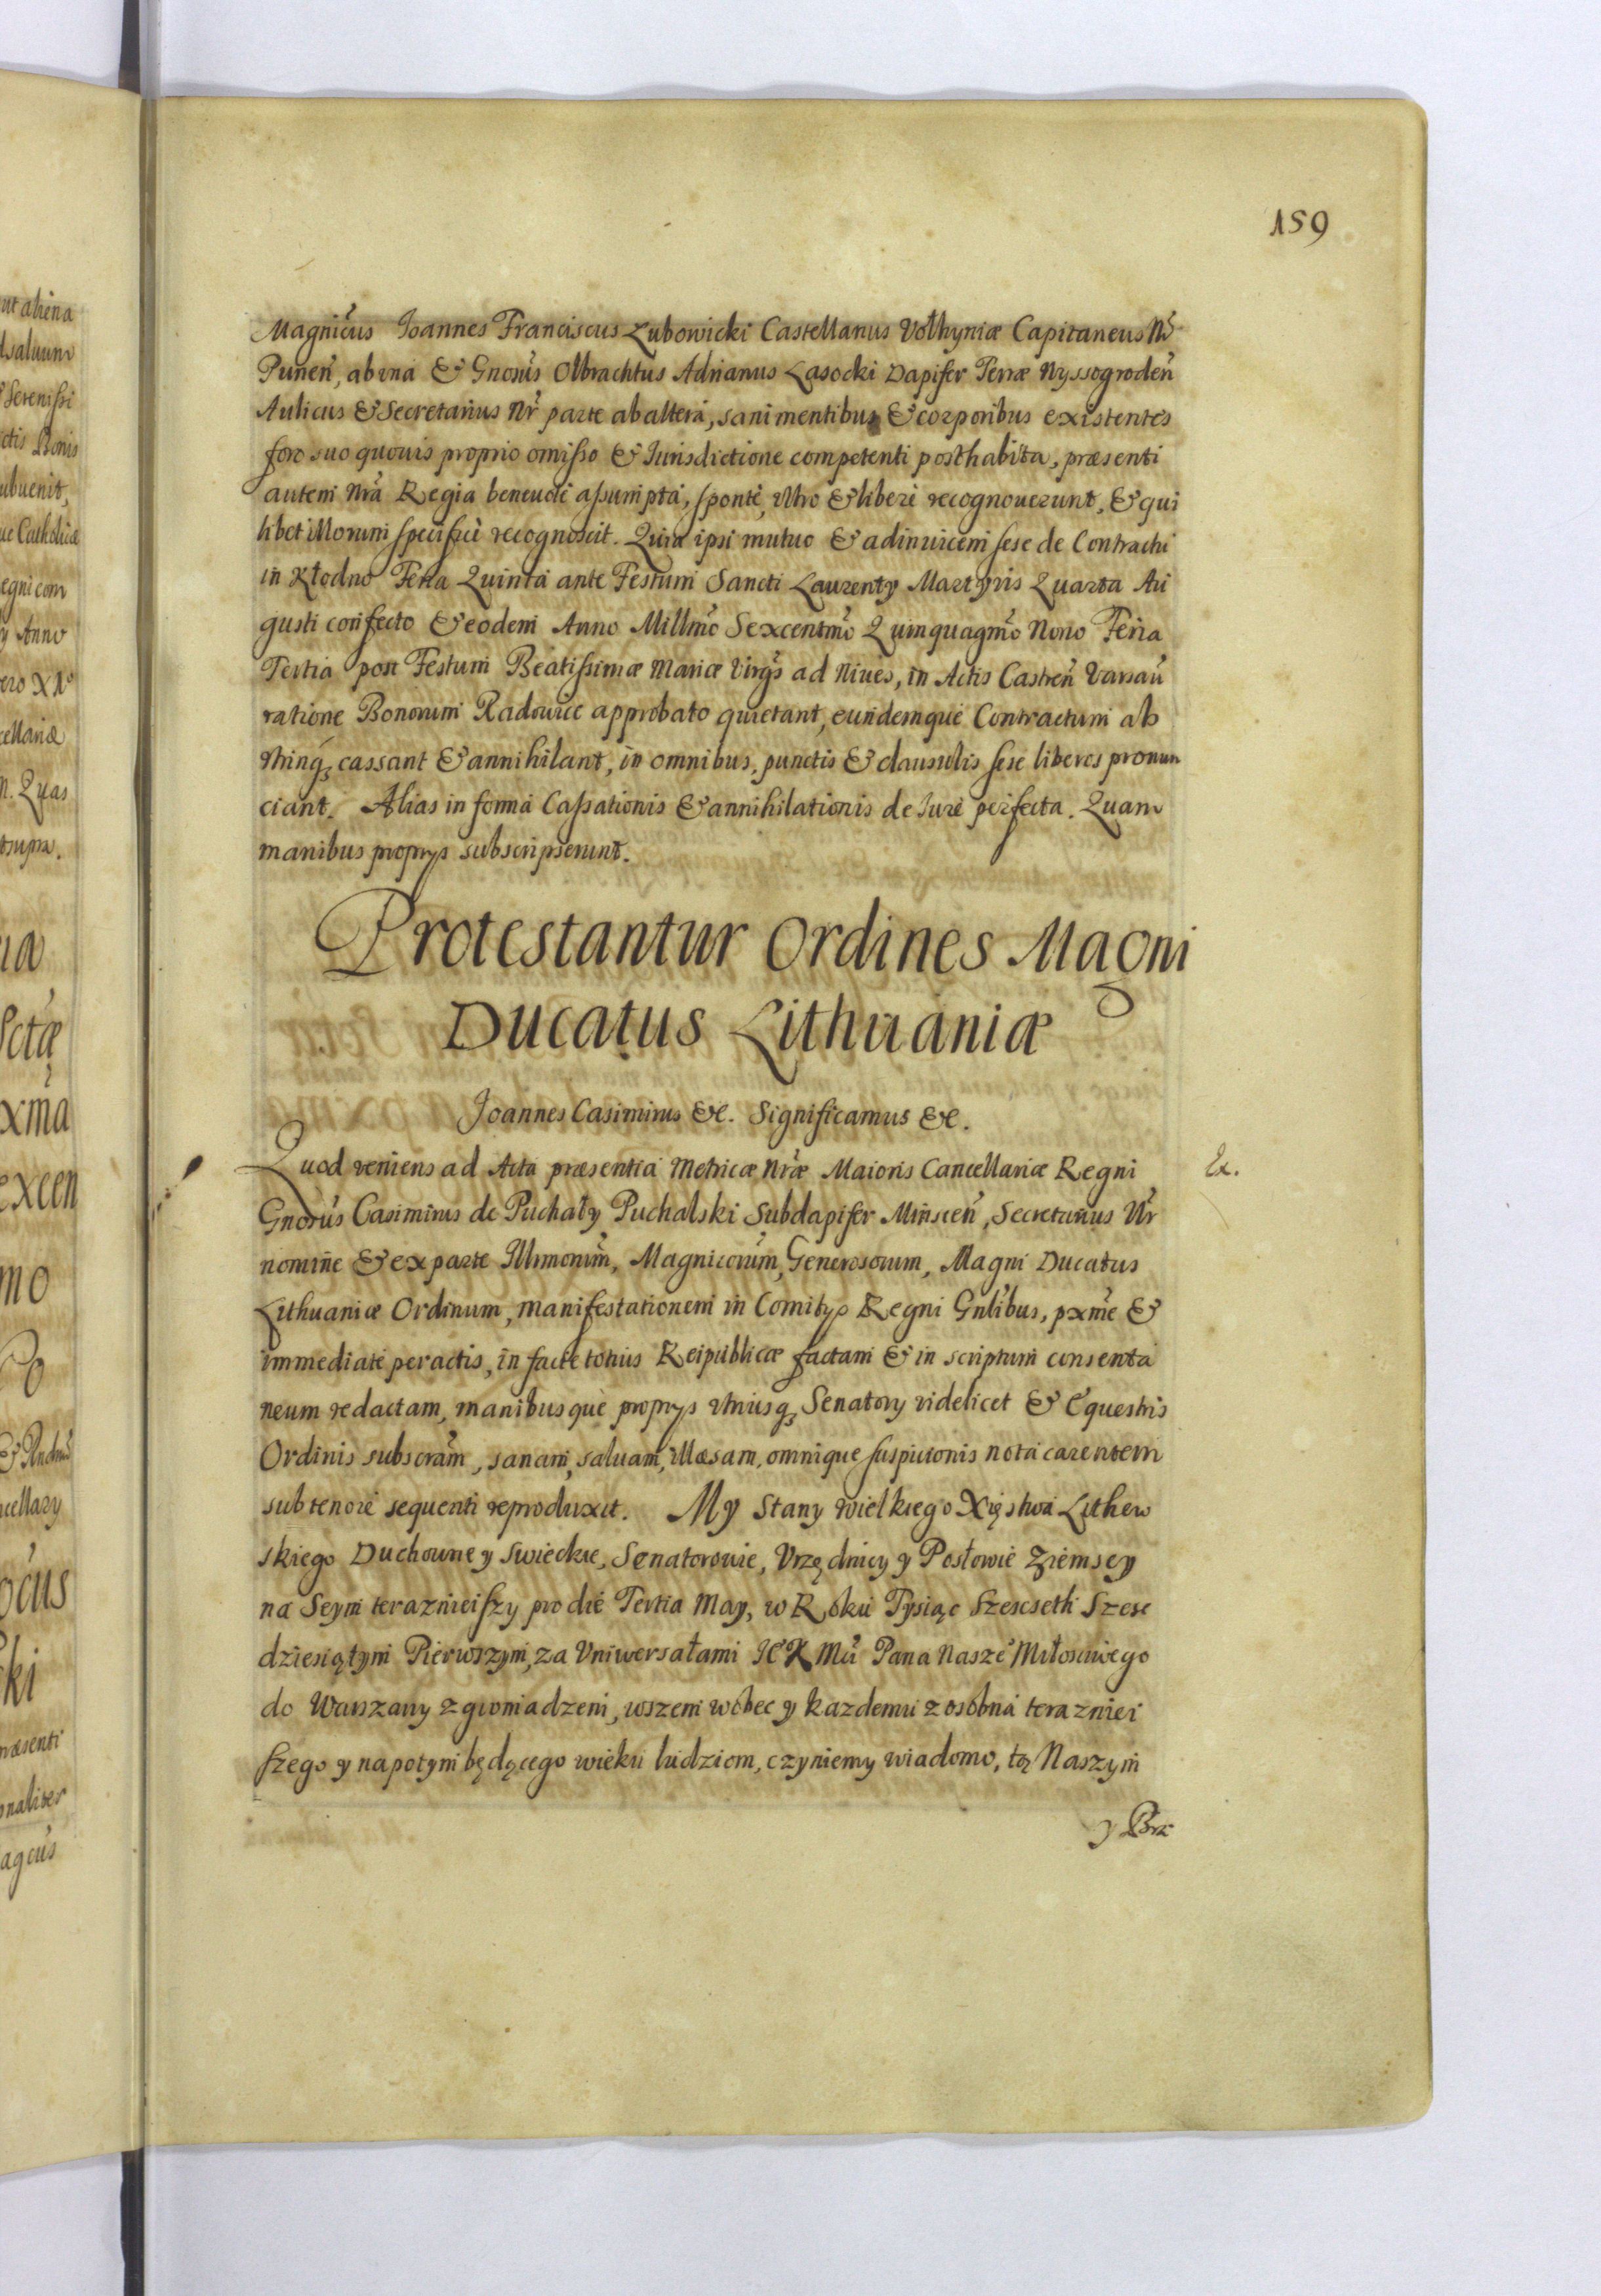 159
Magnicus Joannes Franciscus Lubowicki Castellanus Volhyniæ Capitaneus Nr
Punen, ab una & Gnosus Olbrachtus Adrianus Lasocki Dapifer Terræ Wyssogroden
Aulicus & Secretarius Nr parte ab altera, sani mentibus & corporibus existentes
foro suo quouis proprio omisso & Iurisdictione competenti posthabita, præsenti
autem Nra Regia beneuole assumpta, sponte, vltro & libere recognouerunt, & qui
libet illorum specifice recognoscit. Quia ipsi mutuo & adinuicem sese de Contractu
in Kłodno Feria Quinta ante Festum Sancti Laurenty Martyris Quarta Au
gusti confecto & eodem Anno Millmo Sexcentmo Quinquagmo Nono Feria
Tertia post Festum Beatissimæ Mariæ Virgs ad Niues, in Actis Castren Varsau
ratione Bonorum Radowice approbato quietant, eundemque Contractum ab
vtrinq cassant & annihilant, in omnibus, punctis & clausulis sese liberos pronun
ciant. Alias in forma Cassationis & annihilationis de Iure perfecta. Quam
manibus proprys subscripserunt.
Protestantur Ordines Magni
Ducatus Lithuaniæ
Joannes Casimirus &c. Significamus &c.
Quod veniens ad Acta præsentia Metricæ Nræ Maioris Cancellariæ Regni
Ex.
Gnosus Casimirus de Puchały Puchalski Subdapifer Minscen, Secretarius Nr
nomine & ex parte Illmorum, Magnicorum, Generosorum, Magni Ducatus
Lithuaniæ Ordinum, manifestationem in Comitys Regni Gnlibus, pxme &
immediate peractis, in facie totius Reipublicæ factam & in scriptum consenta
neum redactam, manibusque proprys vtriusq Senatory videlicet & Equestris
Ordinis subscram, sanam, saluam, illæsam, omnique suspicionis nota carentem
sub tenore sequenti reproduxit. My Stany Wielkiego Xięstwa Lithew
skiego Duchowne y Swieckie, Senatorowie, Vrzędnicy y Posłowie Ziemscy
na Seym teraznieiszy pro die Tertia May, w Roku Tysiąc Szescseth Szesc
dziesiątym Pierwszym, za Vniwersałami JE K Mci Pana Nasze Miłosciwego
do Warszawy zgromadzeni, wszem wobec y kazdemu zosobna terazniei
szego y napotym będącego wieku ludziom, czyniemy wiadomo, tą Naszym
y Bra